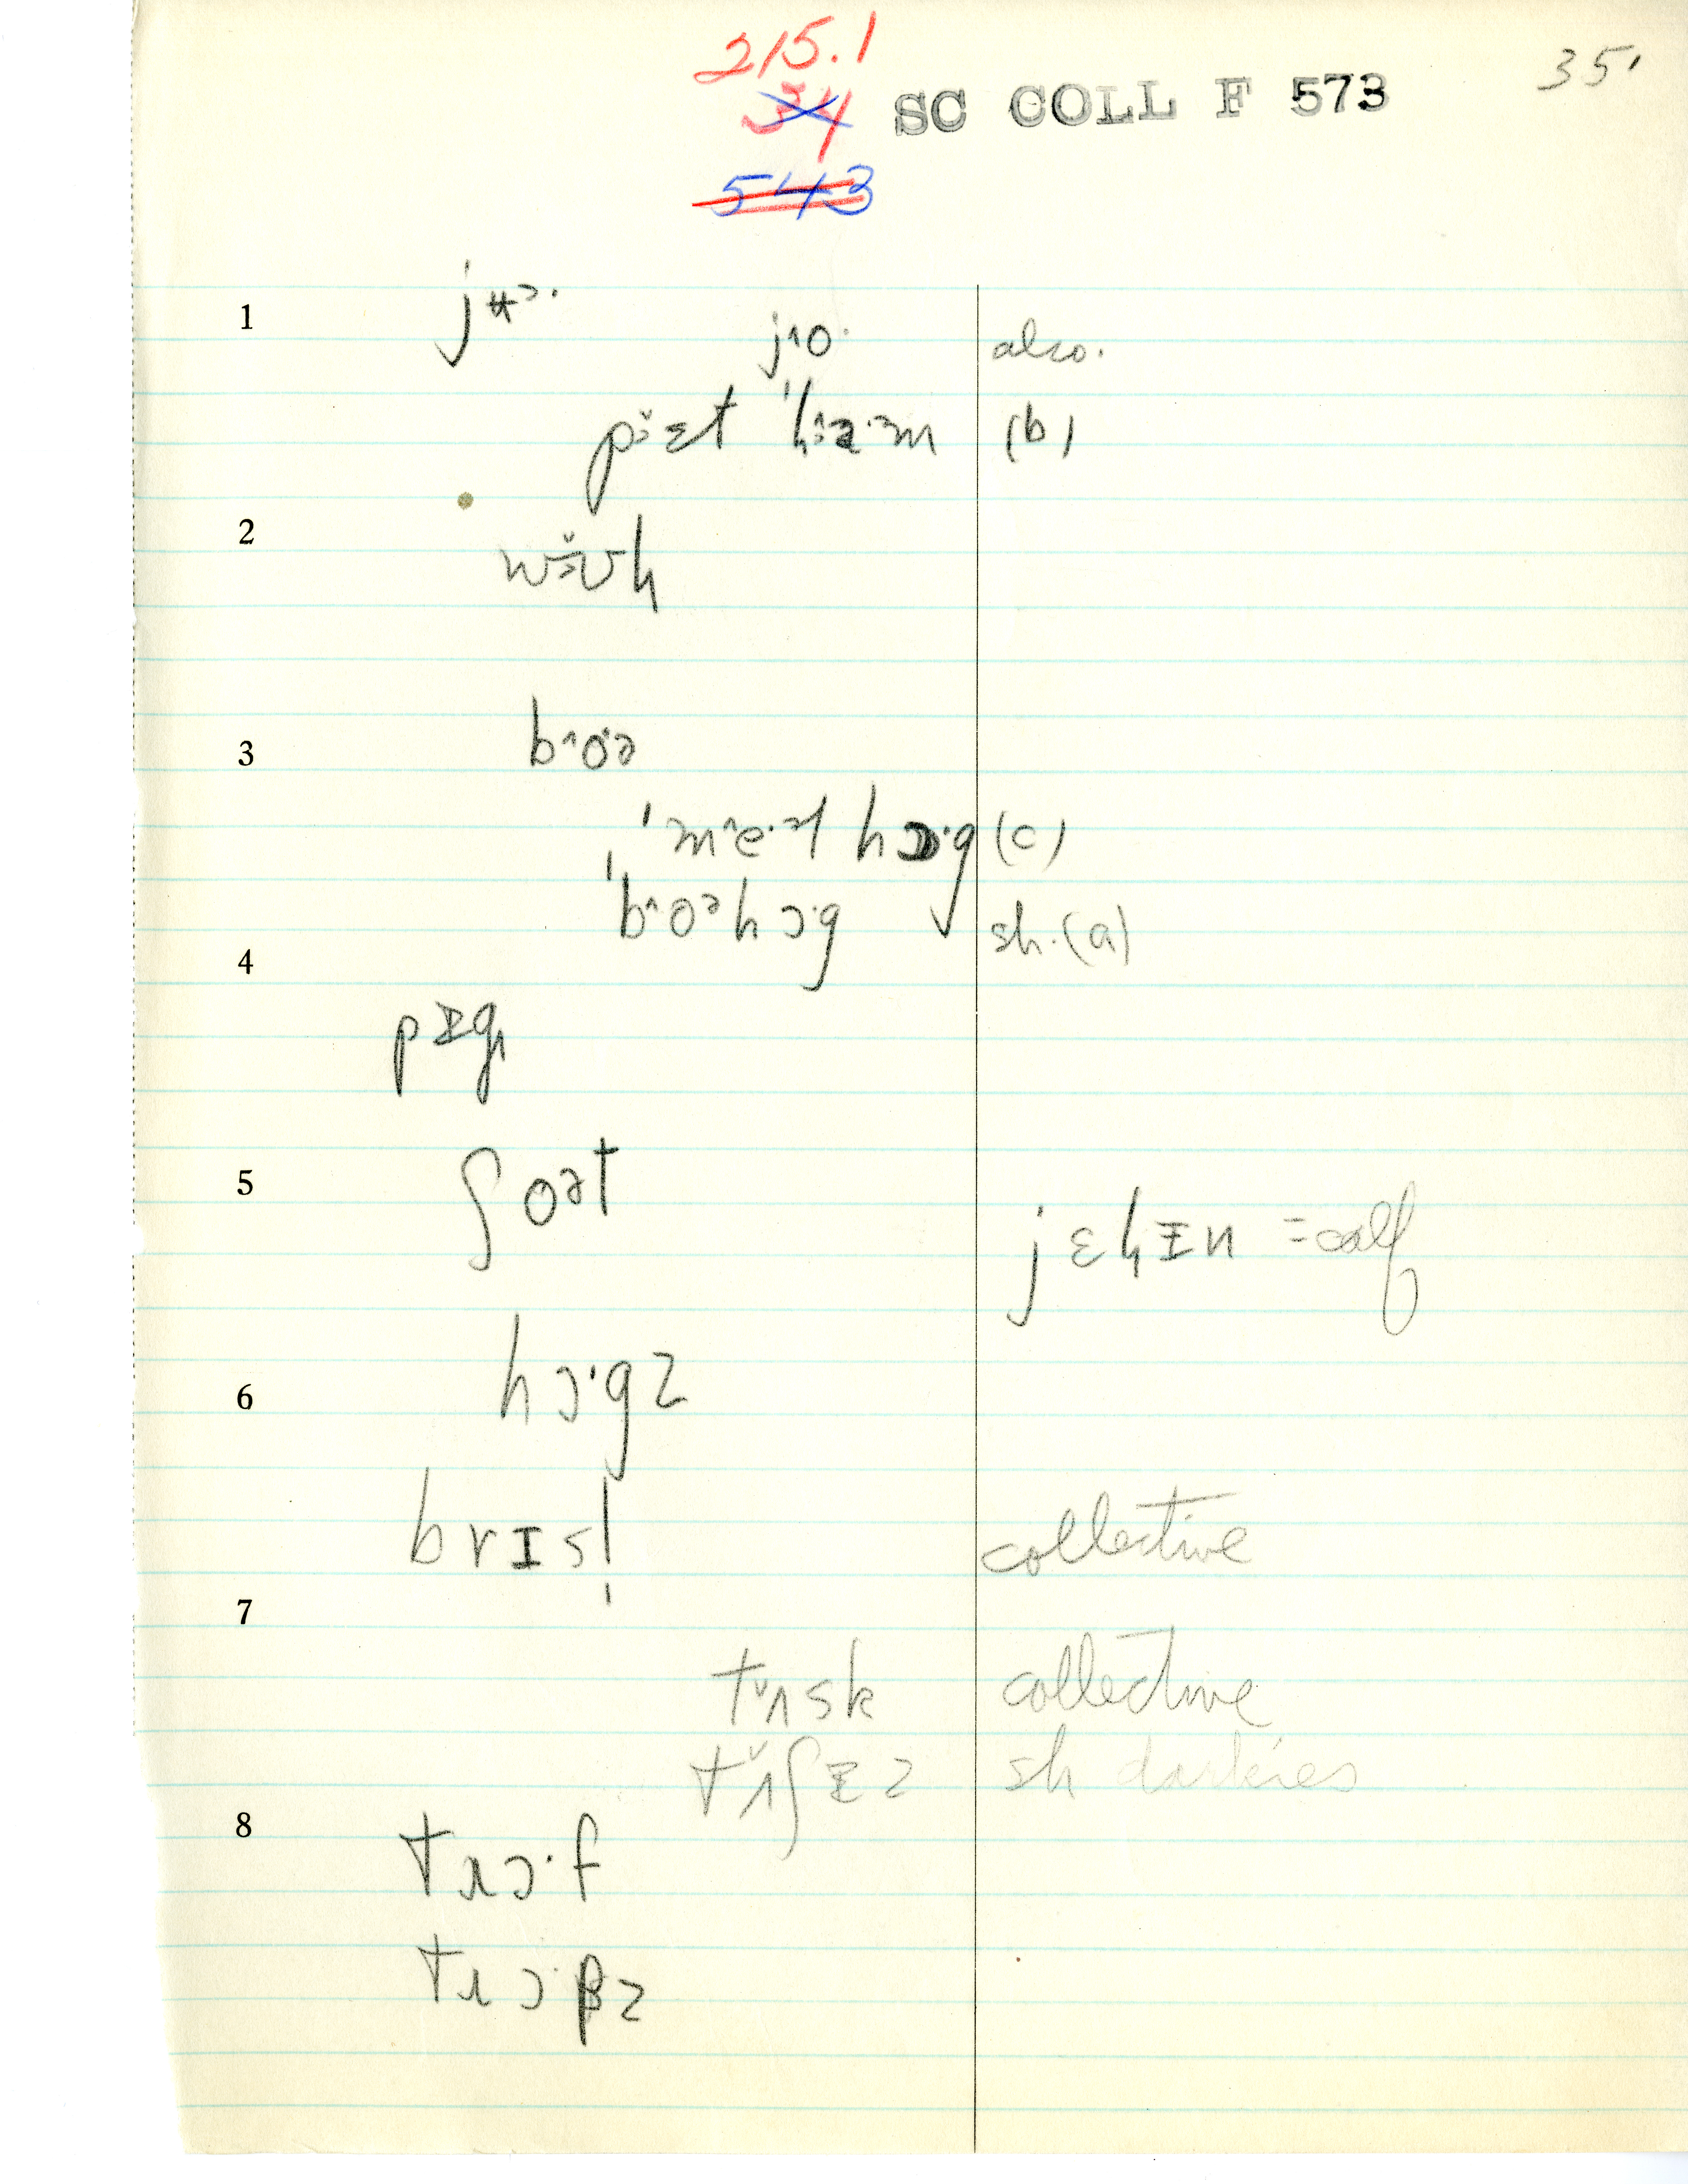 215.1
34 SC COLL F 573
35'
543
1
jɔ·
jˆo· also.
pɜ̌ɛt ˈhɜɑ·ɜm (b)
2
3
bˆoə
ˈmˆe·ət hɔ·g (c)
ˈbˆoəhɔ·g sh. (a)
4
pɪg
5
ʃoət
jɛɦɪn = calf
6
hɔ·gz
brɪsl̩ collective
7
tʌ̌sk collective
tʌ̌ʃɪz sh darkies
8
tɹɔ·f
tɹɔ·βz